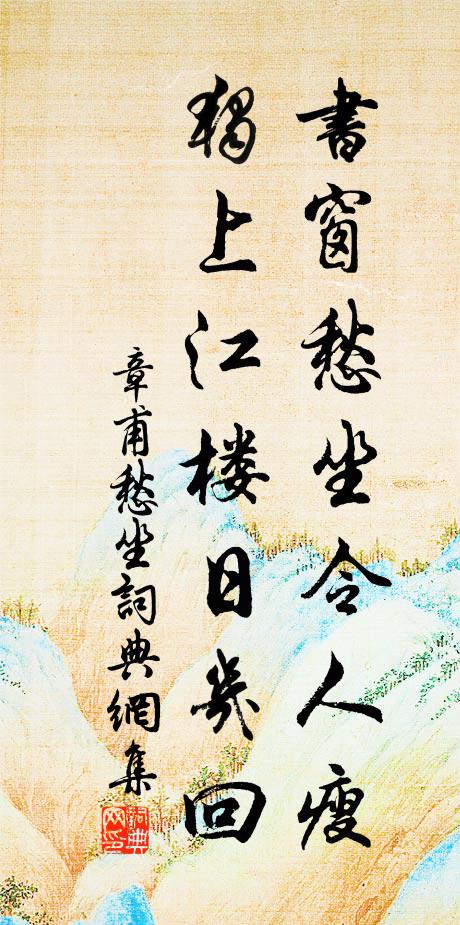 書窗愁坐令人瘦
獨上江楼日幾回
章甫愁坐詞典網集
詞典網印